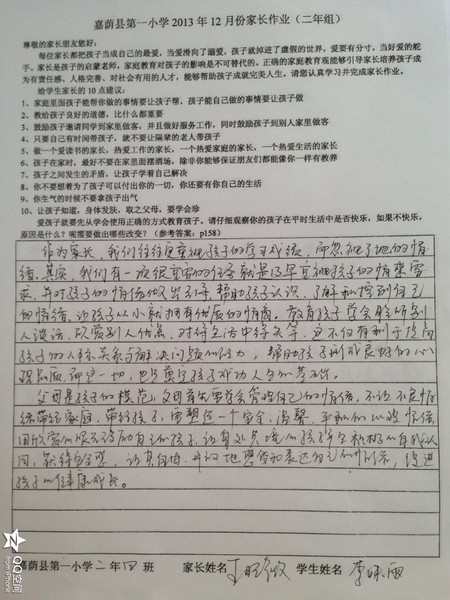 嘉荫县第一小学 2013 年 12 月份家长作业（二年组）
尊敬的家长朋友您好:
每位家长都把孩子当成自己的最爱，当爱滑向了溺爱，孩子就掉进了虚假的世界，爱要有分寸，当好爱的舵
手。家长是孩子的启蒙老师，家庭教育对孩子的影响是不可替代的。正确的家庭教育观能够引导家长培养孩子成
为有责任感、人格完善、对社会有用的人才，能够帮助孩子成就完美人生。请您认真学习并完成家长作业。
给学生家长的 10 点建议：
1、家庭里面孩子能帮你做的事情要让孩子帮，孩子能自己做的事情要让孩子做
2、教给孩子良好的道德，比什么都重要
3、鼓励孩子邀请同学到家里做客，并且做好服务工作，同时鼓励孩子到别人家里做客
4、只要自己有时间带孩子，就不要让隔辈的老人带孩子
5、做一个爱读书的家长，热爱工作的家长，一个热爱家庭的家长，一个热爱生活的家长
6、孩子在家时，最好不要在家里面摆酒场，除非你能够保证朋友们都能像你一样有教养
7、孩子之间发生的矛盾，让孩子学着自己解决
8、你不要想着为了孩子可以付出你的一切，你还要有你自己的生活
9、你生气的时候不要拿孩子出气
10、让孩子知道，身体发肤，取之父母，要学会珍
爱孩子就要先从学会使用正确的方式教育孩子。请仔细观察你的孩子在平时生活中是否快乐，如果不快乐，
原因是什么？呢需要做出哪些改变？（参考答案：p158）
作为家长，我们往往更重视孩子的学习成绩，而忽视了他的情
绪。其实，我们有一项很重要的任务就是及早重视孩子的情绪需
求，并对孩子的情绪做出引导，帮助孩子认识、了解和控制自己
的情绪，让孩子从小就拥有健康的情商。教育孩子学会聆听别
人谈话，欣赏别人优点，对待生活中得失等，这不仅有利于提高
孩子的人际关系与解决问题的能力，帮助孩子形成良好的心
理品质，而这一切，也是奠定孩子成功人生的基石。
父母是孩子的模范，父母首先要学会管理自己的情绪，不让不良情
绪带给家庭，带给孩子，
用欣赏的
同，获得安全感，
孩子的健康成长。
嘉荫县第一小学 二 年 四 班 家长姓名 学生姓名 李
QQ空间
from iPhone